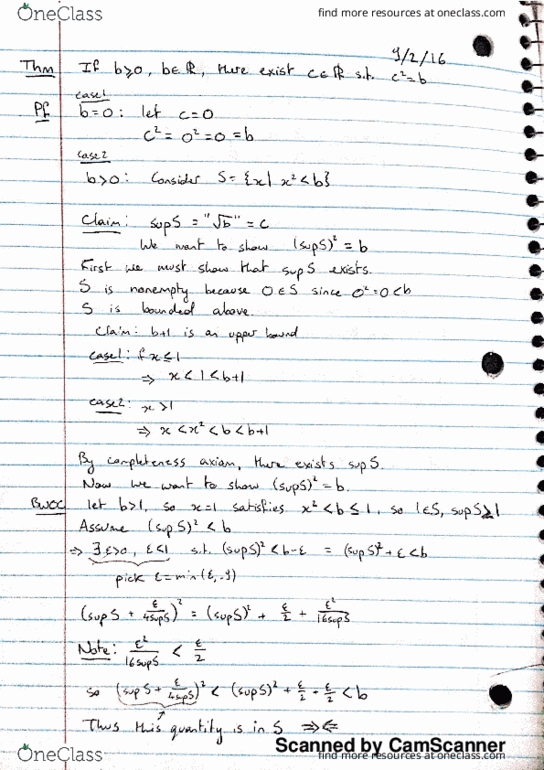 OneClass
find more resources at oneclass.com
9/2/16
Thm If b≥0, b∈ℝ, there exist c∈ℝ s.t. c²=b
case1
Pf b=0: let c=0
c²=0²=0=b
case2
b>0: Consider S={x| x²<b}
Claim: sup S = "√b" = c
We want to show (sup S)² = b
First we must show that sup S exists.
S is nonempty because 0∈S since 0²=0<b
S is bounded above.
Claim: b+1 is an upper bound
case1: if x≤1
⇒ x<1<b+1
case2: x>1
⇒ x<x²<b<b+1
By completeness axiom, there exists sup S.
Now we want to show (sup S)² = b.
BWOC let b>1, so x=1 satisfies x²<b≤1, so 1∈S, sup S≥1
Assume (sup S)² < b
⇒ ∃ε>0, ε<1 s.t. (sup S)²<b-ε = (sup S)²+ε<b
pick ε=min(ε, .9)
(sup S + ε/4sup S)² = (sup S)² + ε/2 + ε²/16sup S
Note: ε²/16sup S < ε/2
so (sup S + ε/4sup S)² < (sup S)² + ε/2 + ε/2 < b
Thus this quantity is in S ⇒⇐
Scanned by CamScanner
OneClass
find more resources at oneclass.com